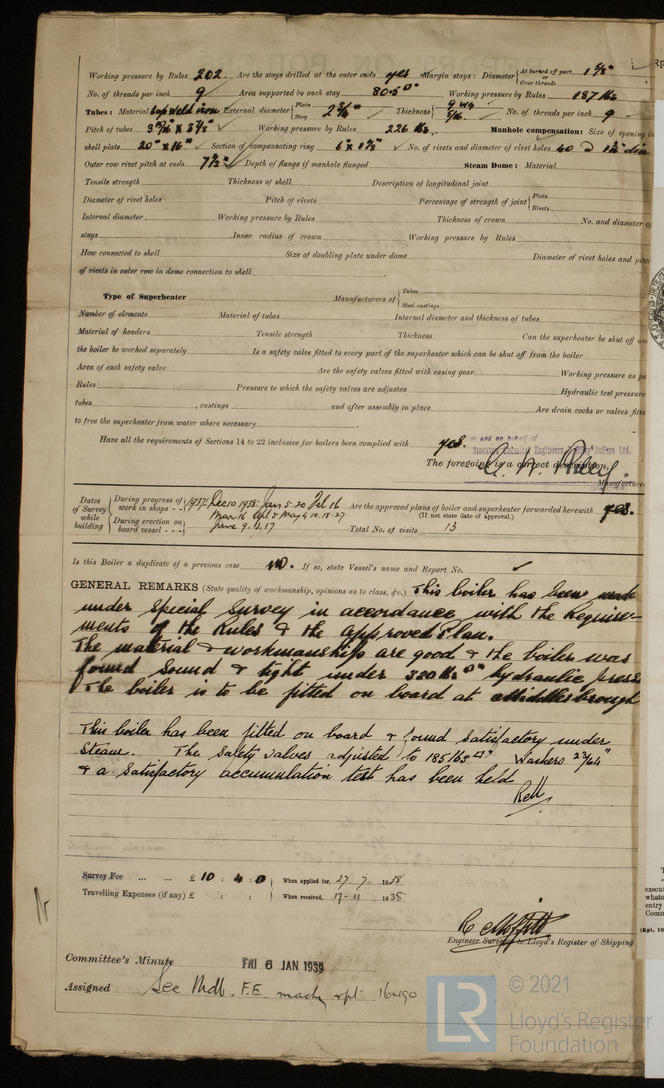 Working pressure by Rules 202. Are the stays drilled at the outer ends yes Margin stays: Diameter { At turned off part, or Over threads 1 5/8"
No. of threads per inch 9 Area supported by each stay 80.5 □" Working pressure by Rules 187 lbs
Tubes: Material Lap Weld iron External diameter { Plain Stay 2 3/4" Thickness { 9 WG 5/16 No. of threads per inch 9
Pitch of tubes Working pressure by Rules 226 lbs. Manhole compensation: Size of opening in
shell plate 20" x 16" Section of compensating ring No. of rivets and diameter of rivet holes 40
Outer row rivet pitch at ends 7 1/2" Depth of flange if manhole flanged Steam Dome: Material
Tensile strength Thickness of shell Description of longitudinal joint
Diameter of rivet holes Pitch of rivets Percentage of strength of joint { Plate Rivets
Internal diameter Working pressure by Rules Thickness of crown No. and diameter of
stays Inner radius of crown Working pressure by Rules
How connected to shell Size of doubling plate under dome Diameter of rivet holes and pitch
of rivets in outer row in dome connection to shell
Type of Superheater Manufacturers of { Tubes Steel castings
Number of elements Material of tubes Internal diameter and thickness of tubes
Material of headers Tensile strength Thickness Can the superheater be shut off and
the boiler be worked separately Is a safety valve fitted to every part of the superheater which can be shut off from the boiler
Area of each safety valve Are the safety valves fitted with easing gear Working pressure as per
Rules Pressure to which the safety valves are adjusted Hydraulic test pressure
tubes , castings and after assembly in place Are drain cocks or valves fitted
to free the superheater from water where necessary
Have all the requirements of Sections 14 to 22 inclusive for boilers been complied with yes.
For and on behalf of
Stockton Chemical Engineers & Riley Boilers Ltd.
The foregoing is a correct description,
Manufacturer
Dates of Survey while building { During progress of work in shops - - { 1937: Dec 10 1938: Jan 5. 20 Feb 16 Are the approved plans of boiler and superheater forwarded herewith yes.
Mar 16 Apl 5 May 4. 10. 18. 27 (If not state date of approval.)
During erection on board vessel - - - { June 9. 13. 17 Total No. of visits 13
Is this Boiler a duplicate of a previous case no. If so, state Vessel's name and Report No.
GENERAL REMARKS (State quality of workmanship, opinions as to class, &c.) This boiler has been made
under Special Survey in accordance with the Require-
ments of the Rules & the Approved Plan.
The material & workmanship are good & the boiler was
found sound & tight under 320 lbs □" hydraulic press
The boiler is to be fitted on board at Middlesbrough
This boiler has been fitted on board & found satisfactory under
steam. The safety valves adjusted to 185 lbs □" Washers 23/64"
& a satisfactory accumulation test has been held
Survey Fee ... ... £ 10 : 4 : 0 When applied for, 27 - 7 - 1938
Travelling Expenses (if any) £ : : When received, 17 - 11 1938
Engineer Surveyor to Lloyd's Register of Shipping
Committee's Minute FRI 6 JAN 1939
Assigned See Mdb. F.E. machy rpt 16190
LR © 2021
Lloyd's Register
Foundation